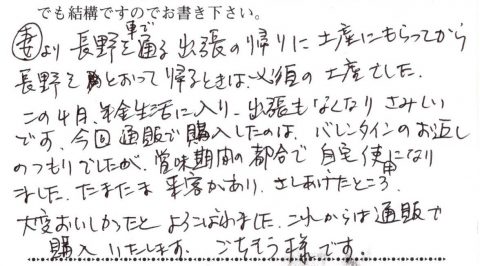 でも結構ですのでお書き下さい。
妻より長野を車で通る出張の帰りに土産にもらってから
長野をとおって帰るときは、必須の土産でした.
この4月、年金生活に入り、出張もなくなりさみしい
です、今回通販で購入したのは、バレンタインのお返し
のつもりでしたが、賞味期間の都合で自宅使用になり
ました、たまたま来客があり、さしあげたところ、
大変おいしかったとよろこばれました、これからは通販で
購入いたします、ごちそう様です.